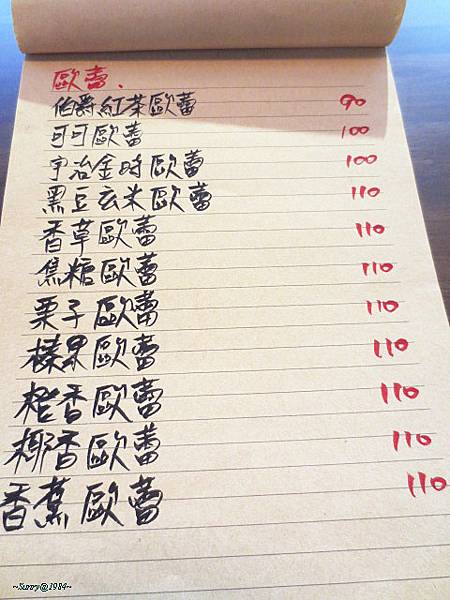 歐蕾、
伯爵紅茶歐蕾 90
可可歐蕾 100
宇治金時歐蕾 100
黑豆玄米歐蕾 110
香草歐蕾 110
焦糖歐蕾 110
栗子歐蕾 110
榛果歐蕾 110
橙香歐蕾 110
椰香歐蕾 110
香蕉歐蕾 110
~Sunny@1984~